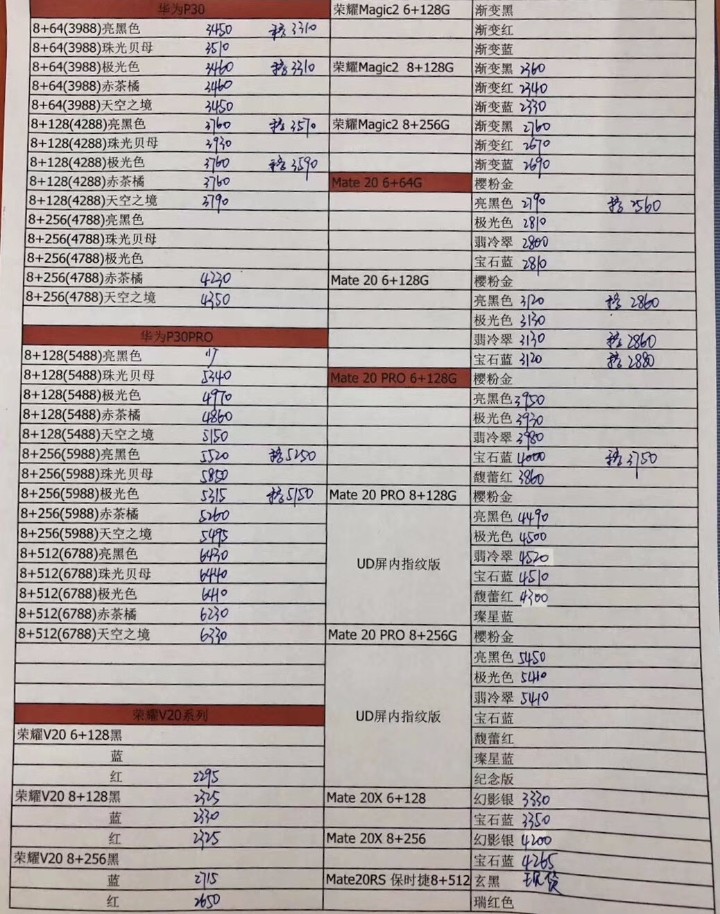 华为P30
8+64(3988)亮黑色 3450 3310
8+64(3988)珠光贝母 3510
8+64(3988)极光色 3460 3310
8+64(3988)赤茶橘 3460
8+64(3988)天空之境 3450
8+128(4288)亮黑色 3760 3570
8+128(4288)珠光贝母 3930
8+128(4288)极光色 3760 3590
8+128(4288)赤茶橘 3760
8+128(4288)天空之境 3790
8+256(4788)亮黑色
8+256(4788)珠光贝母
8+256(4788)极光色
8+256(4788)赤茶橘 4230
8+256(4788)天空之境 4350
华为P30PRO
8+128(5488)亮黑色
8+128(5488)珠光贝母 5340
8+128(5488)极光色 4970
8+128(5488)赤茶橘 4860
8+128(5488)天空之境 5150
8+256(5988)亮黑色 5520 5250
8+256(5988)珠光贝母 5850
8+256(5988)极光色 5315 5150
8+256(5988)赤茶橘 5260
8+256(5988)天空之境 5495
8+512(6788)亮黑色 6430
8+512(6788)珠光贝母 6440
8+512(6788)极光色 6410
8+512(6788)赤茶橘 6230
8+512(6788)天空之境 6330
荣耀V20系列
荣耀V20 6+128黑
蓝
红 2295
荣耀V20 8+128黑 2325
蓝 2330
红 2325
荣耀V20 8+256黑
蓝 2715
红 2650
荣耀Magic2 6+128G 渐变黑
渐变红
渐变蓝
荣耀Magic2 8+128G 渐变黑 2360
渐变红 2340
渐变蓝 2330
荣耀Magic2 8+256G 渐变黑 2760
渐变红 2670
渐变蓝 2690
Mate 20 6+64G 樱粉金
亮黑色 2790 2560
极光色 2810
翡冷翠 2800
宝石蓝 2810
Mate 20 6+128G 樱粉金
亮黑色 3120 2860
极光色 3130
翡冷翠 3130 2860
宝石蓝 3120 2880
Mate 20 PRO 6+128G 樱粉金
亮黑色 3950
极光色 3930
翡冷翠 3980
宝石蓝 4000 3750
馥蕾红 3860
Mate 20 PRO 8+128G 樱粉金
UD屏内指纹版
亮黑色 4490
极光色 4500
翡冷翠 4520
宝石蓝 4510
馥蕾红 4300
璨星蓝
Mate 20 PRO 8+256G 樱粉金
UD屏内指纹版
亮黑色 5450
极光色 5410
翡冷翠 5410
宝石蓝
馥蕾红
璨星蓝
纪念版
Mate 20X 6+128 幻影银 3330
宝石蓝 3350
Mate 20X 8+256 幻影银 4200
宝石蓝 4265
Mate20RS 保时捷8+512 玄黑 现货
瑞红色